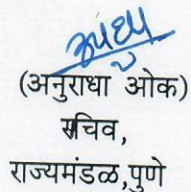 (अनुराधा ओक)
सचिव,
राज्यमंडळ,पुणे